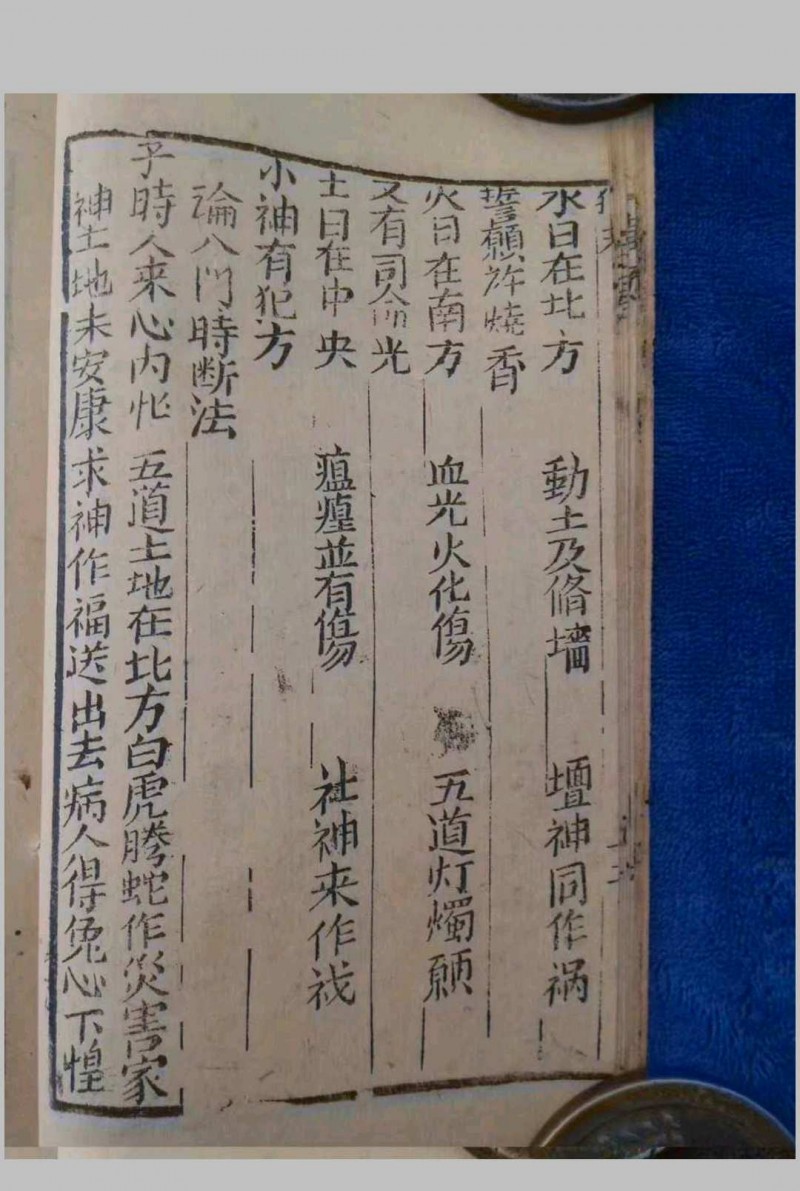 水日在北方 動土及脩墻 壇神同作祸
誓願許燒香
火日在南方 血光火化傷 五道灯燭願
又有司命光
土日在中央 瘟瘟並有傷 社神来作
小神有犯方
論八門時断法
子時人来心内忙 五道土地在北方白虎騰蛇作災害家
神土地未安康求神作福送出去病人得兔心下惶